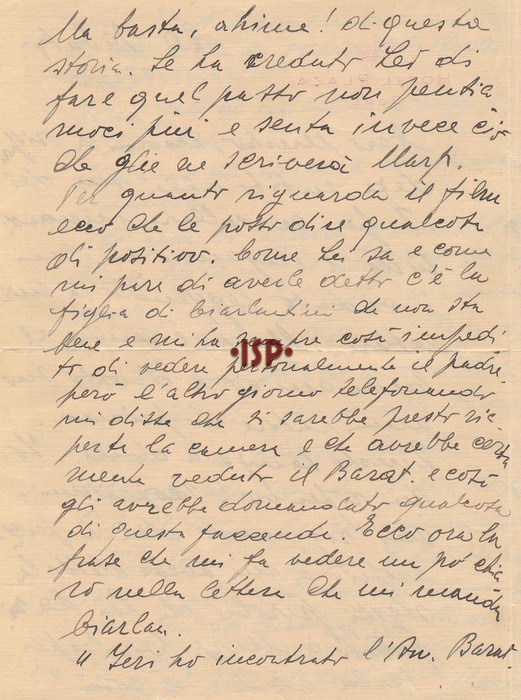 Ma basta, ahime! di questa
storia. Se ha creduto Lei di
fare quel passo non pentia
moci più e senta invece ciò
che glie ne scriverà Marp.
Per quanto riguarda il film
ecco che le posso dire qualcosa
di positivo. Come Lei sa e come
mi pare di averle detto c'è la
figlia di Ciarlantini che non sta
bene e mi ha sempre così impedi
to di vedere personalmente il padre
però l'altro giorno telefonando
mi disse che si sarebbe presto ria
perta la camera e che avrebbe certa
mente veduto il Barat. e così
gli avrebbe domandato qualcosa
di questa faccenda. Ecco ora la
frase che mi fa vedere un pó chia
ro nella lettera che mi manda
Ciarlan.
" Ieri ho incontrato l'On. Barat.
·ISP·